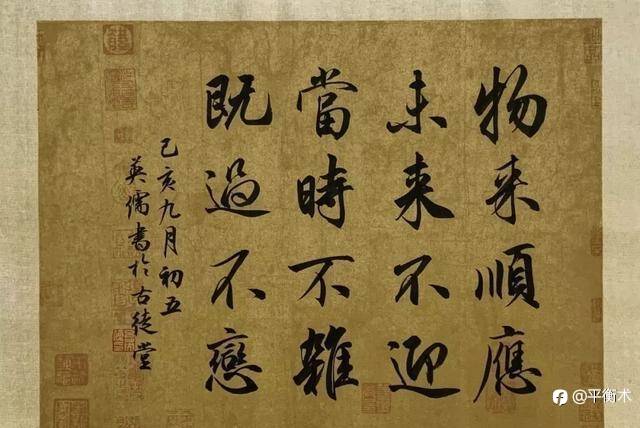 物来順應
未来不迎
當時不雜
既過不戀
己亥九月初五
英儒書於古徒堂
@平衡术